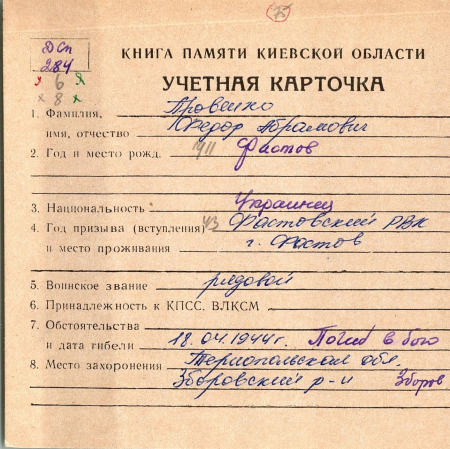 75
ДСп
284
у 6 Я
х 8 х
КНИГА ПАМЯТИ КИЕВСКОЙ ОБЛАСТИ
УЧЕТНАЯ КАРТОЧКА
1. Фамилия, Провенко
имя, отчество Федор Абрамович
2. Год и место рожд. 911 Фастов
3. Национальность Украинец
4. Год призыва (вступления) 43 Фастовский РВК
и место проживания г. Фастов
5. Воинское звание рядовой
6. Принадлежность к КПСС. ВЛКСМ
7. Обстоятельства
и дата гибели 18.04.1944г. Погиб в бою
8. Место захоронения Тернопольская обл.
Зборовский р-н Зборов